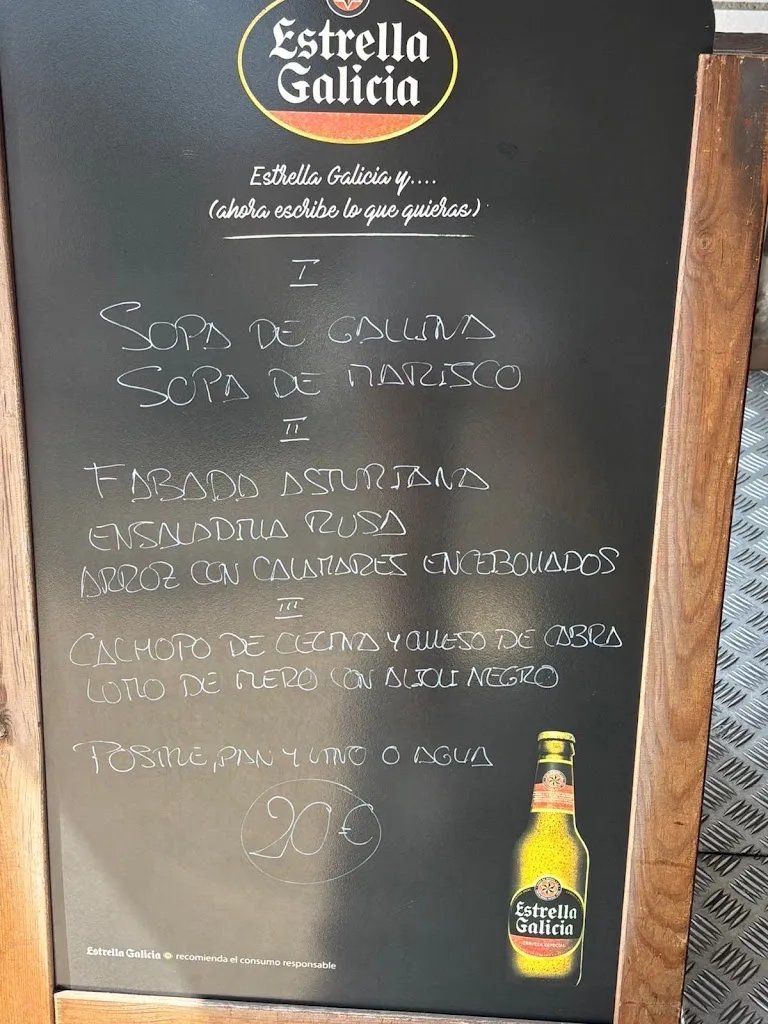 Estrella
Galicia
Estrella Galicia y....
(ahora escribe lo que quieras)
I
SOPA DE GALLINA
SOPA DE MARISCO
II
FABADA ASTURIANA
ENSALADILLA RUSA
ARROZ CON CALAMARES ENCEBOLLADOS
III
CACHOPO DE CECINA Y QUESO DE CABRA
LOMO DE MERO CON ALIOLI NEGRO
POSTRE, PAN Y VINO O AGUA
20€
Estrella
Galicia
CERVEZA ESPECIAL
Estrella Galicia recomienda el consumo responsable